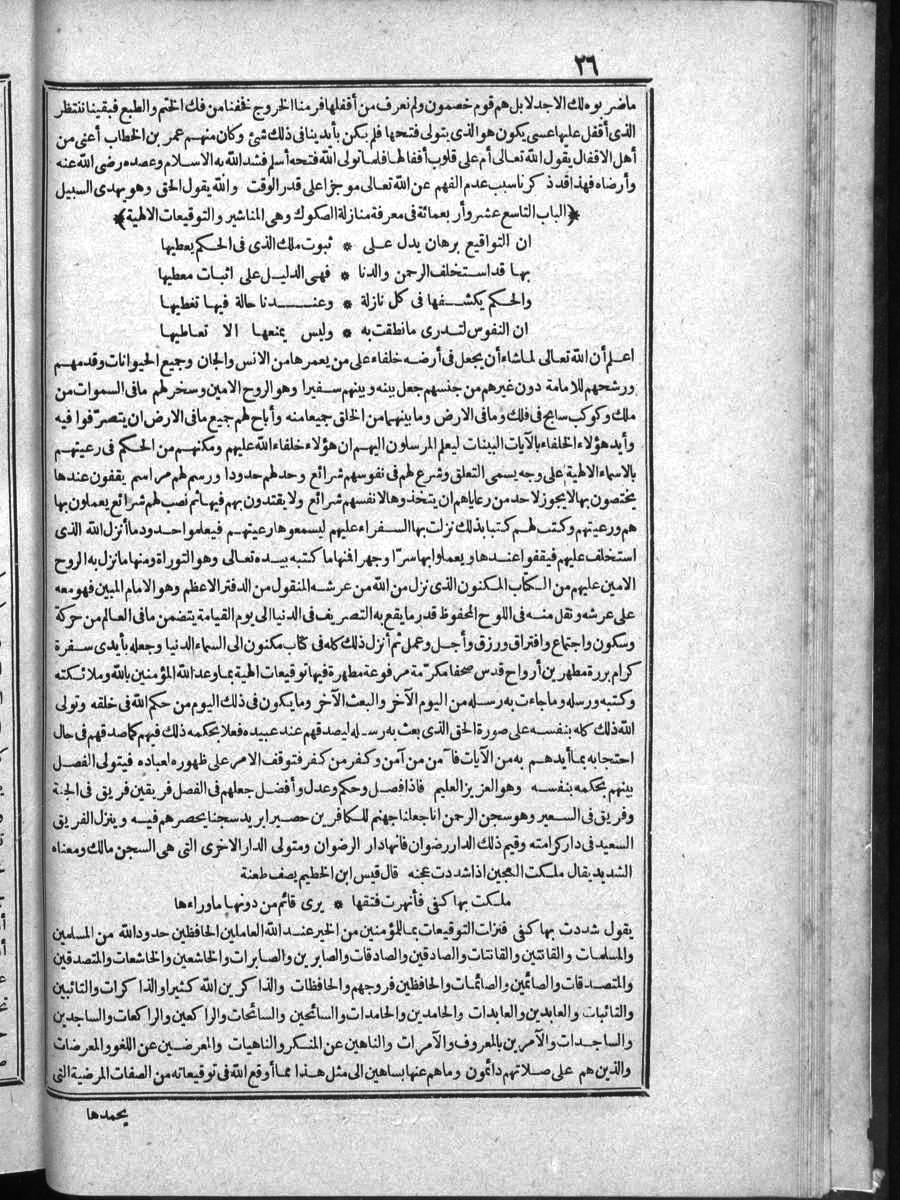 ٣٦
ماضربوه لك الاجدلا بل هم قوم خصمون ولم نعرف من أقفلها فرمنا الخروج فخفنا من فك الختم والطبع فبقينا ننتظر
الذى أقفل عليها عسى يكون هو الذى يتولى فتحها فلم يكن بأيدينا فى ذلك شئ وكان منهم عمر بن الخطاب أعنى من
أهل الاقفال يقول الله تعالى أم على قلوب أقفالها فلما تولى الله فتحه أسلم فشد الله به الاسلام وعصده رضى الله عنه
وأرضاه فهذا قد ذكرنا سبب عدم الفهم عن الله تعالى موجزا على قدر الوقت والله يقول الحق وهو يهدى السبيل
﴿الباب التاسع عشر وأربعمائة فى معرفة منازلة الصكوك وهى المناشير والتوقيعات الالهية﴾
ان التواقيع برهان يدل على * ثبوت ملك الذى فى الحكم يعطيها
بها قد استخلف الرحمن والدنا * فهى الدليل على اثبات معطيها
والحكم يكشفها فى كل نازلة * وعندنا حالة فيها تغطيها
ان النفوس لتدرى ما نطقت به * وليس يمنعها الا تعاطيها
اعلم أن الله تعالى لما شاء أن يجعل فى أرضه خلفاء على من يعمرها من الانس والجان وجميع الحيوانات وقدمهم
ورشحهم للامامة دون غيرهم من جنسهم جعل بينه وبينهم سفيرا وهو الروح الامين وسخر لهم مافى السموات من
ملك وكوكب سابح فى فلك ومافى الارض وما بينهما من الخلق جميعا منه وأباح لهم جميع مافى الارض ان يتصرّفوا فيه
وأيد هؤلاء الخلفاء بالآيات البينات ليعلم المرسلون اليهم ان هؤلاء خلفاء الله عليهم ومكنهم من الحكم فى رعيتهم
بالاسماء الالهية على وجه يسمى التعلق وشرع لهم فى نفوسهم شرائع وحد لهم حدودا ورسم لهم مراسم يقفون عندها
يختصون بها لا يجوز لاحد من رعاياهم ان يتخذوها لانفسهم شرائع ولا يقتدون بهم فيها ثم نصب لهم شرائع يعملون بها
هم ورعيتهم وكتب لهم كتبا بذلك نزلت بها السفراء عليهم ليسمعوها رعيتهم فيعلموا حدود ما أنزل الله الذى
استخلف عليهم فيقفوا عندها ويعملوا بها سرّا وجهرا فمنها ما كتبه بيده تعالى وهو التوراة ومنها ما نزل به الروح
الامين عليهم من الكتاب المكنون الذى نزل من الله من عرشه المنقول من الدفتر الاعظم وهو الامام المبين فهو معه
على عرشه ونقل منه فى اللوح المحفوظ قدر ما يقع به التصريف فى الدنيا الى يوم القيامة يتضمن مافى العالم من حركة
وسكون واجتماع وافتراق ورزق وأجل وعمل ثم أنزل ذلك كله فى كتاب مكنون الى السماء الدنيا وجعله بأيدى سفرة
كرام بررة مطهرين أرواح قدس صحفا مكرّمة مرفوعة مطهرة فيها توقيعات الهية بما وعد الله المؤمنين بالله وملائكته
وكتبه ورسله وما جاءت به رسله من اليوم الآخر والبعث الآخر وما يكون فى ذلك اليوم من حكم الله فى خلقه وتولى
الله ذلك كله بنفسه على صورة الحق الذى بعث به رسله ليصدقهم عند عبيده فعلا بحكمه ذلك فيهم كما صدقهم فى حال
احتجابه بما أيدهم به من الآيات فآمن من آمن وكفر من كفر فتوقف الامر على ظهوره لعباده فيتولى الفصل
بينهم بحكمه بنفسه وهو العزيز العليم فاذا فصل وحكم وعدل وأفضل جعلهم فى الفصل فريقين فريق فى الجنة
وفريق فى السعير وهو سجن الرحمن انا جعلنا جهنم للكافرين حصيرا يريد سجنا يحصرهم فيه وينزل الفريق
السعيد فى دار كرامته وقيم ذلك الدار رضوان فانها دار الرضوان ومتولى الدار الاخرى التى هى السجن مالك ومعناه
الشديد يقال ملكت العجين اذا شددت عجنه قال قيس ابن الخطيم يصف طعنة
ملكت بها كفى فأنهرت فتقها * يرى قائم من دونها ما وراءها
يقول شددت بها كفى فنزلت التوقيعات بما للمؤمنين من الخير عند الله العاملين الحافظين حدود الله من المسلمين
والمسلمات والقانتين والقانتات والصادقين والصادقات والصابرين والصابرات والخاشعين والخاشعات والمتصدقين
والمتصدقات والصائمين والصائمات والحافظين فروجهم والحافظات والذاكرين الله كثيرا والذاكرات والتائبين
والتائبات والعابدين والعابدات والحامدين والحامدات والسائحين والسائحات والراكعين والراكعات والساجدين
والساجدات والآمرين بالمعروف والآمرات والناهين عن المنكر والناهيات والمعرضين عن اللغو والمعرضات
والذين هم على صلاتهم دائمون وما هم عنها بساهين الى مثل هذا مما أوقع الله فى توقيعاته من الصفات المرضية التى
يحمدها